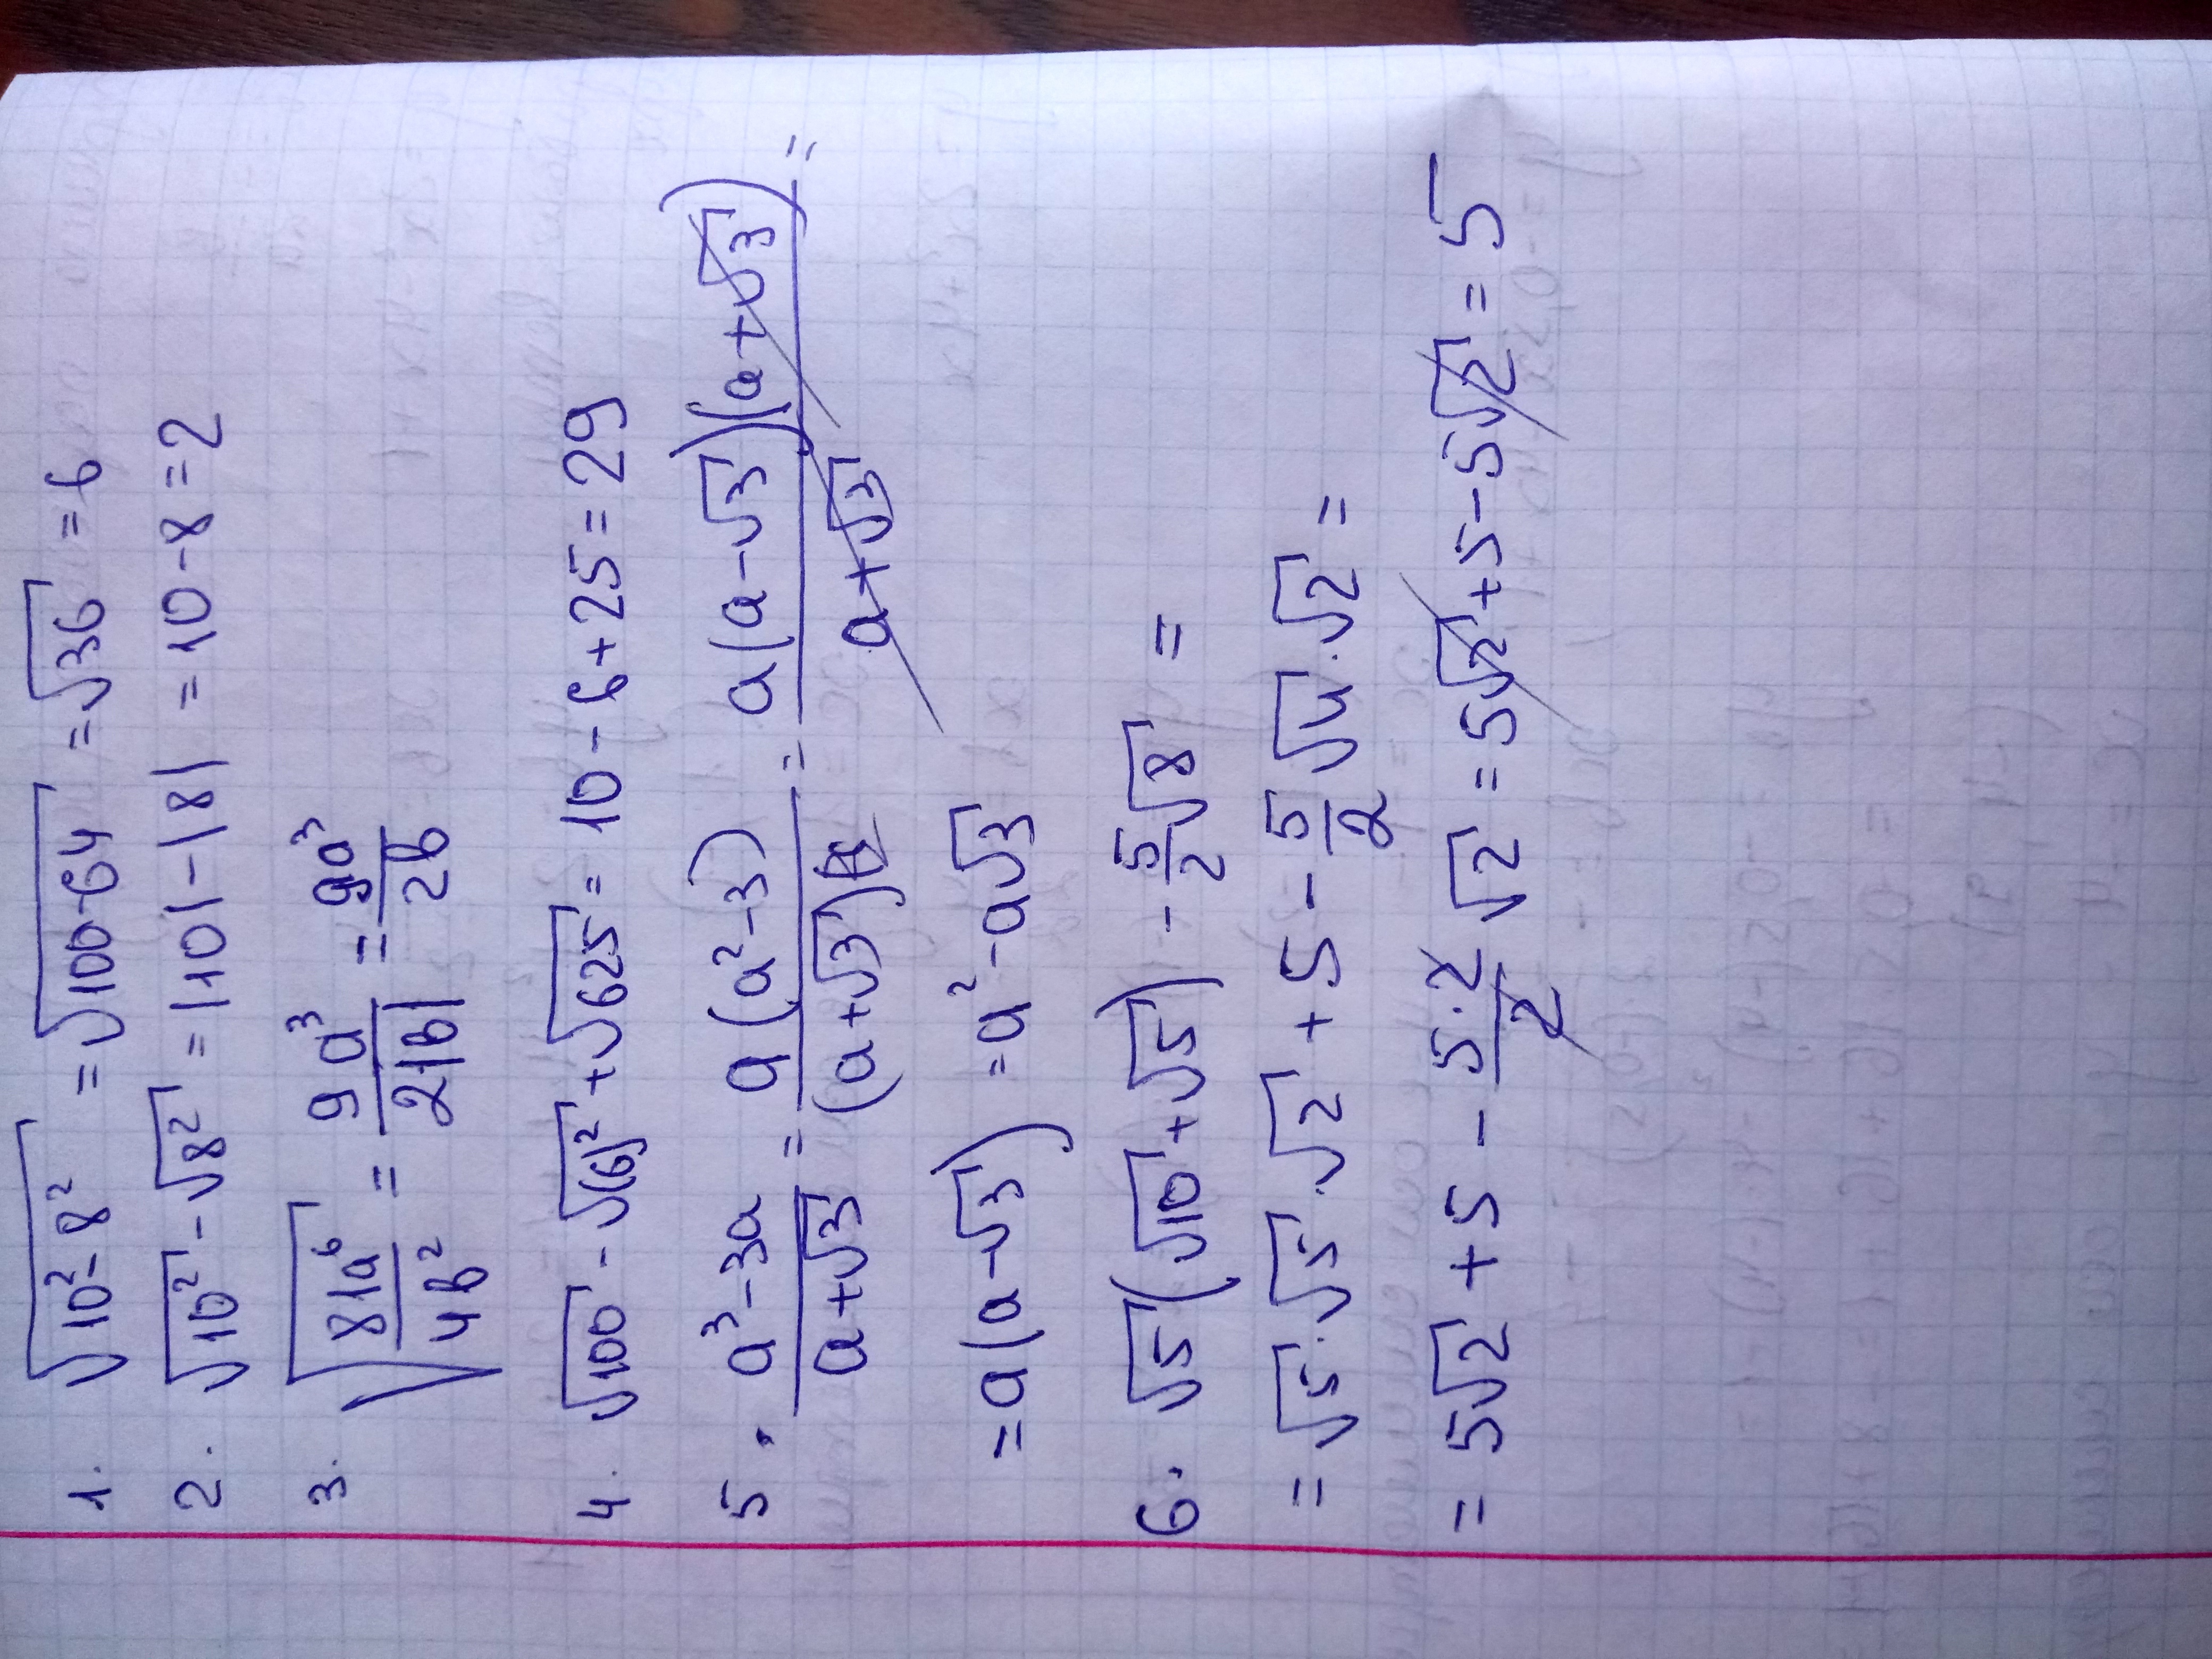 1. √(10²-8²) = √(100-64) = √36 = 6
2. √10² - √8² = |10| - |8| = 10-8 = 2
3. √(81a⁶/4b²) = 9a³/2|b| = 9a³/2b
4. √100 - √(6)² + √625 = 10-6+25 = 29
5. (a³-3a)/(a+√3) = a(a²-3)/(a+√3) = a(a-√3)(a+√3)/(a+√3) =
= a(a-√3) = a²-a√3
6. √5(√10+√5) - 5/2 √8 =
= √5·√5·√2 + 5 - 5/2 √4·√2 =
= 5√2 + 5 - 5·2/2 √2 = 5√2+5-5√2 = 5